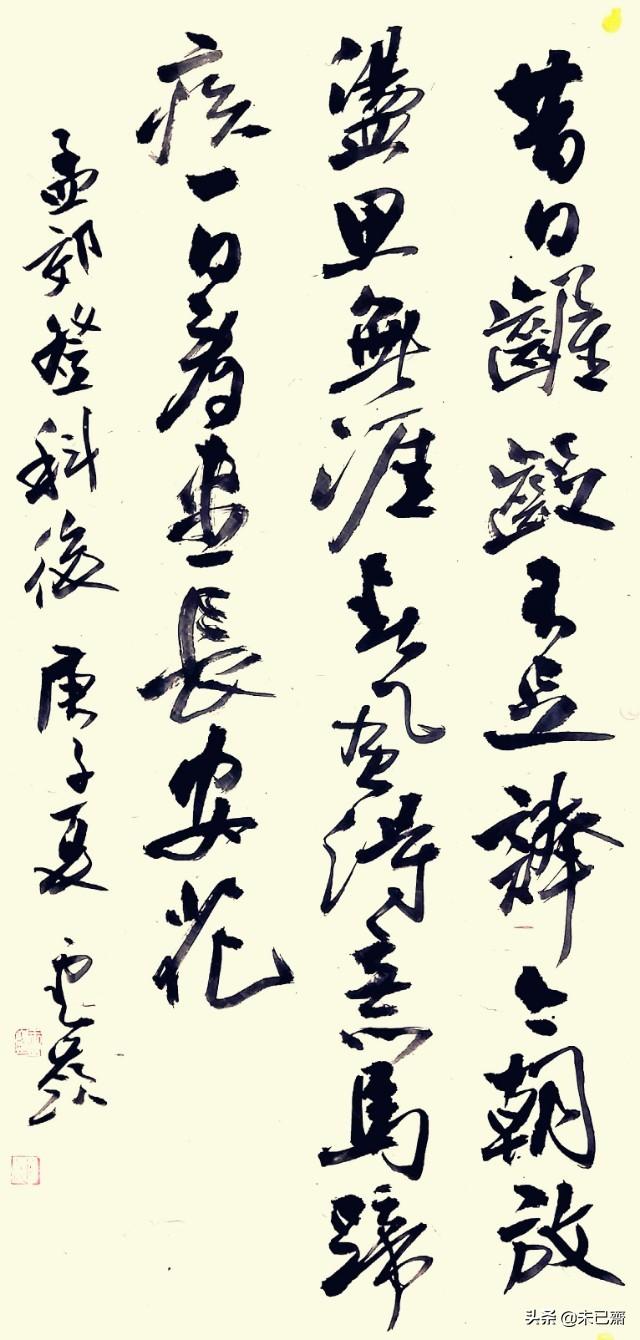 昔日齷齪不足誇今朝放
盪思無涯春風得意馬蹄
疾一日看盡長安花
孟郊登科後 庚子夏
头条 @未已齋